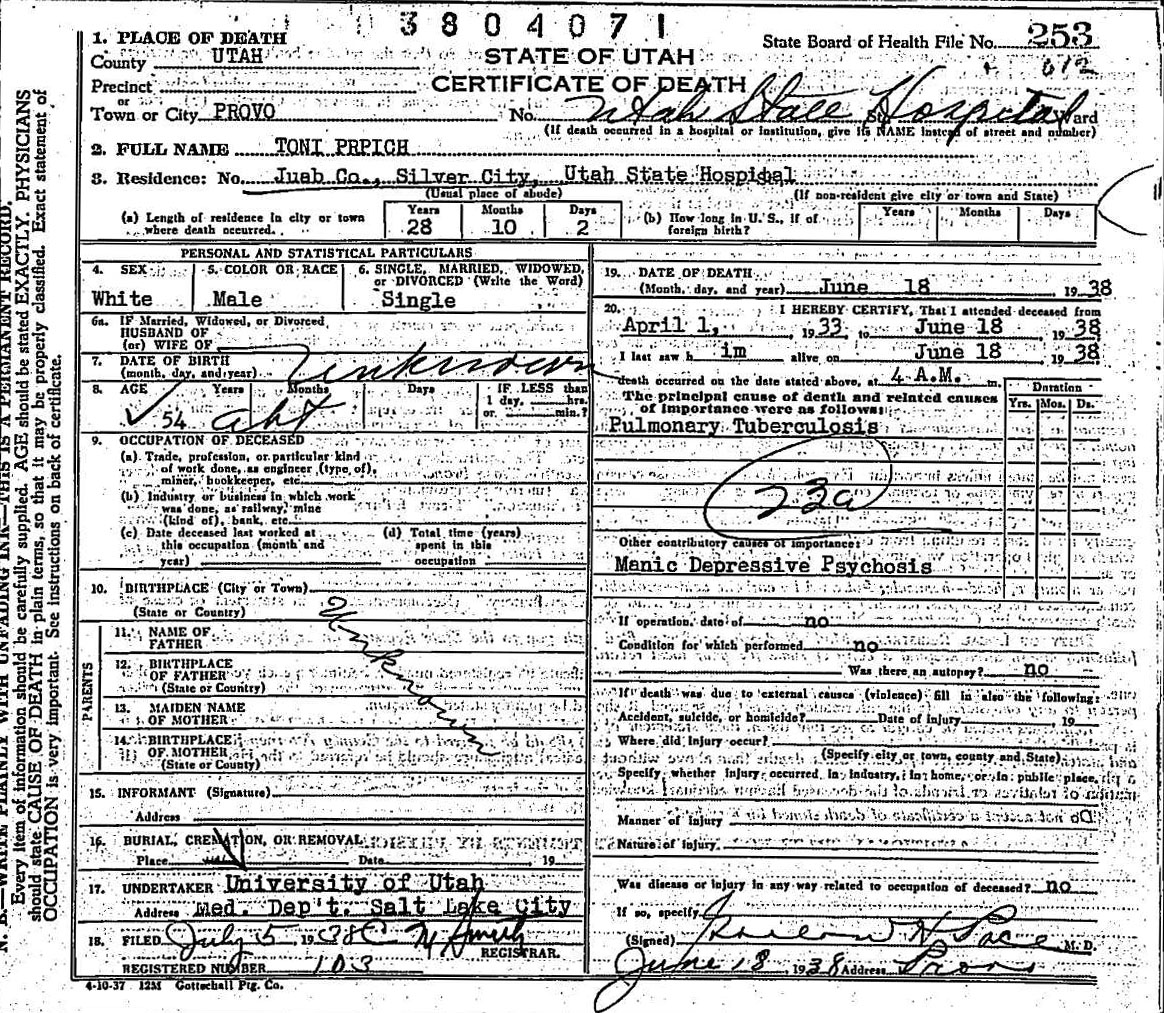 3804071
1. PLACE OF DEATH
County UTAH
Precinct
or
Town or City PROVO
STATE OF UTAH
CERTIFICATE OF DEATH
State Board of Health File No. 253
612
No. Utah State Hospital St. Ward
(If death occurred in a hospital or institution, give its NAME instead of street and number)
2. FULL NAME TONI PRPICH
3. Residence: No. Juab Co., Silver City, Utah State Hospital
(Usual place of abode) (If non-resident give city or town and State)
(a) Length of residence in city or town where death occurred. Years 28 Months 10 Days 2
(b) How long in U. S., if of foreign birth? Years Months Days
PERSONAL AND STATISTICAL PARTICULARS
4. SEX White
5. COLOR OR RACE Male
6. SINGLE, MARRIED, WIDOWED, or DIVORCED (Write the Word) Single
6a. IF Married, Widowed, or Divorced
HUSBAND OF
(or) WIFE OF
7. DATE OF BIRTH
(month, day, and year) Unknown
8. AGE Years Months Days IF LESS than
1 day, hrs.
or min.?
54 abt
9. OCCUPATION OF DECEASED
(a) Trade, profession, or particular kind
of work done, as engineer (type of),
miner, bookkeeper, etc.
(b) Industry or business in which work
was done, as railway, mine
(kind of), bank, etc.
(c) Date deceased last worked at
this occupation (month and
year)
(d) Total time (years)
spent in this
occupation
10. BIRTHPLACE (City or Town)
(State or Country)
Unknown
PARENTS
11. NAME OF
FATHER
12. BIRTHPLACE
OF FATHER
(State or Country)
13. MAIDEN NAME
OF MOTHER
14. BIRTHPLACE
OF MOTHER
(State or Country)
15. INFORMANT (Signature)
Address
16. BURIAL, CREMATION, OR REMOVAL
Place Date 19
17. UNDERTAKER University of Utah
Address Med. Dep't. Salt Lake City
18. FILED July 5 1938
REGISTRAR.
REGISTERED NUMBER 103
4-10-37 12M Gottschall Ptg. Co.
19. DATE OF DEATH
(Month, day, and year) June 18 , 1938
20. I HEREBY CERTIFY, That I attended deceased from
April 1, 1933, to June 18 1938
I last saw h im alive on June 18 1938
death occurred on the date stated above, at 4 A.M. m.
The principal cause of death and related causes
of importance were as follows:
Duration
Yrs. Mos. Ds.
Pulmonary Tuberculosis
23a
Other contributory causes of importance:
Manic Depressive Psychosis
If operation, date of no
Condition for which performed no
Was there an autopsy? no
If death was due to external causes (violence) fill in also the following:
Accident, suicide, or homicide? Date of injury , 19
Where did injury occur?
(Specify city or town, county and State)
Specify whether injury occurred in industry, in home, or in public place.
Manner of injury
Nature of injury
Was disease or injury in any way related to occupation of deceased? no
If so, specify
(Signed) H Pace M. D.
June 18 1938 Address Provo
N. B.—WRITE PLAINLY WITH UNFADING INK—THIS IS A PERMANENT RECORD.
Every item of information should be carefully supplied. AGE should be stated EXACTLY. PHYSICIANS
should state CAUSE OF DEATH in plain terms, so that it may be properly classified. Exact statement of
OCCUPATION is very important. See instructions on back of certificate.